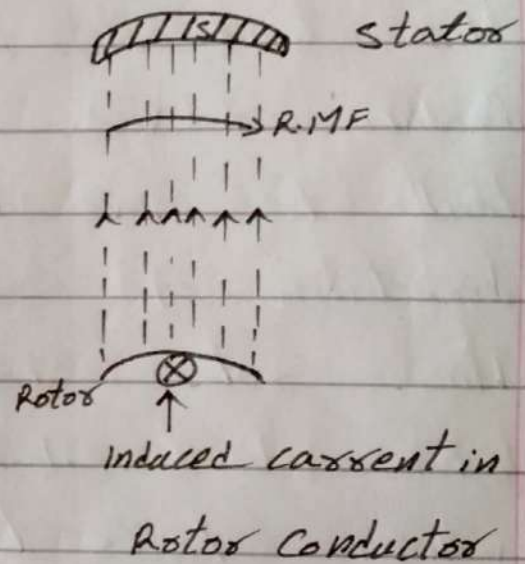 S
Stator
R.MF
Rotor
Induced current in
Rotor Conductor